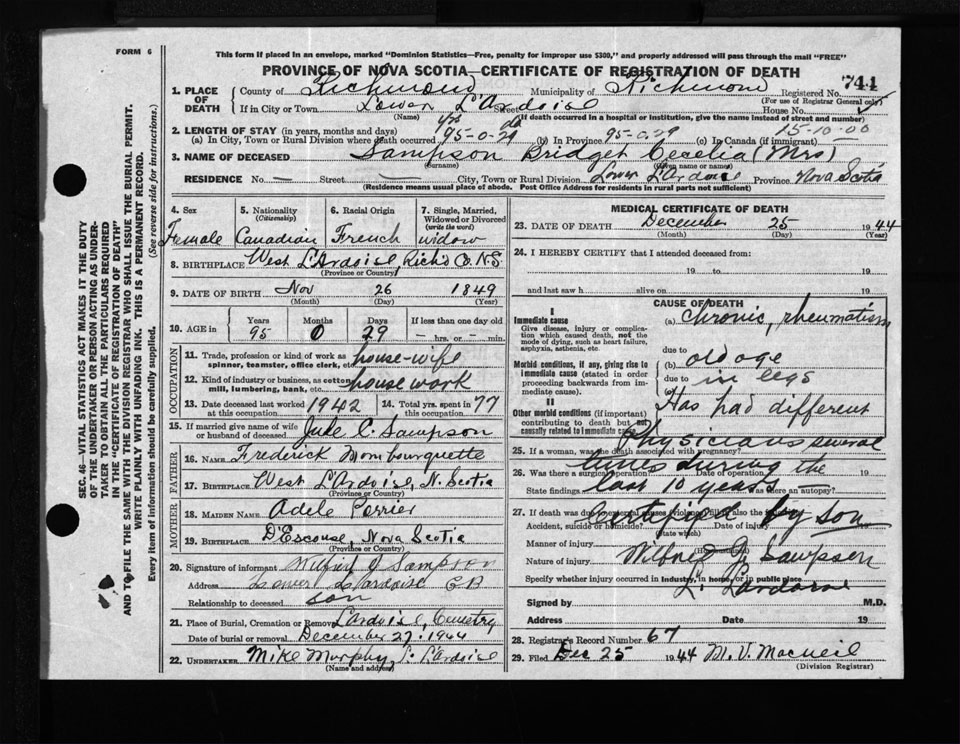 FORM 6
This form if placed in an envelope, marked "Dominion Statistics—Free, penalty for improper use $300," and properly addressed will pass through the mail "FREE"
PROVINCE OF NOVA SCOTIA—CERTIFICATE OF REGISTRATION OF DEATH
744
1. PLACE OF DEATH
County of Richmond Municipality of Richmond Registered No.
(For use of Registrar General only)
If in City or Town Lower L'Ardoise House No.
(Name) (If death occurred in a hospital or institution, give the name instead of street and number)
2. LENGTH OF STAY (in years, months and days) yrs ds 15-10-00
(a) In City, Town or Rural Division where death occurred 95-0-29 (b) In Province 95-0-29 (c) In Canada (if immigrant)
3. NAME OF DECEASED Sampson Bridget Cecelia (Mrs)
(Surname) (Given name or names)
RESIDENCE No. — Street — City, Town or Rural Division Lower L'Ardoise Province Nova Scotia
(Residence means usual place of abode. Post Office Address for residents in rural parts not sufficient)
4. Sex Female
5. Nationality (Citizenship) Canadian
6. Racial Origin French
7. Single, Married, Widowed or Divorced (write the word) widow
8. BIRTHPLACE West L'Ardoise, Rich'd Co. N.S
(Province or Country)
9. DATE OF BIRTH Nov 26 1849
(Month) (Day) (Year)
10. AGE in Years Months Days If less than one day old
95 0 29 hrs. or — min.
OCCUPATION
11. Trade, profession or kind of work as spinner, teamster, office clerk, etc. house-wife
12. Kind of industry or business, as cotton mill, lumbering, bank, etc. house work
13. Date deceased last worked at this occupation 1942 14. Total yrs. spent in this occupation 77
15. If married give name of wife or husband of deceased Jude C. Sampson
FATHER
16. NAME Frederick Mombourquette
17. BIRTHPLACE West L'Ardoise, N. Scotia
(Province or Country)
MOTHER
18. MAIDEN NAME Adele Perrier
19. BIRTHPLACE D'Escouse, Nova Scotia
(Province or Country)
20. Signature of informant J Sampson
Address Lower L'Ardoise CB
Relationship to deceased son
21. Place of Burial, Cremation or Removal L'Ardoise, Cemetry
Date of burial or removal December 27, 1944
22. UNDERTAKER Mike Murphy, L. L'Ardoise
(Name and address)
MEDICAL CERTIFICATE OF DEATH
23. DATE OF DEATH December 25 1944
(Month) (Day) (Year)
24. I HEREBY CERTIFY that I attended deceased from:
19 to 19
and last saw h alive on 19
CAUSE OF DEATH
I
Immediate cause
Give disease, injury or complication which caused death, not the mode of dying, such as heart failure, asphyxia, asthenia, etc.
(a) Chronic, rheumatism
due to
Morbid conditions, if any, giving rise to immediate cause (stated in order proceeding backwards from immediate cause).
(b) old age
due to in legs
(c)
II
Other morbid conditions (if important) contributing to death but not causally related to immediate cause.
Has had different
Physicians several
times during the
last 10 years —
by son
Sampson
L. Lardoise
25. If a woman, was the death associated with pregnancy?
26. Was there a surgical operation? Date of operation 19
State findings Was there an autopsy?
27. If death was due to external causes (violence) fill also the following:
Accident, suicide or homicide? Date of injury 19
(State which)
Manner of injury
Nature of injury
Specify whether injury occurred in industry, in home, or in public place
Signed by M.D.
Address Date 19
28. Registrar's Record Number 67
29. Filed Dec 25 1944 M. V. MacNeil
(Division Registrar)
SEC. 46—VITAL STATISTICS ACT MAKES IT THE DUTY
OF THE UNDERTAKER OR PERSON ACTING AS UNDER-
TAKER TO OBTAIN ALL THE PARTICULARS REQUIRED
IN THE "CERTIFICATE OF REGISTRATION OF DEATH"
AND TO FILE THE SAME WITH THE DIVISION REGISTRAR WHO SHALL ISSUE THE BURIAL PERMIT.
WRITE PLAINLY WITH UNFADING INK. THIS IS A PERMANENT RECORD.
Every item of information should be carefully supplied. (See reverse side for instructions.)